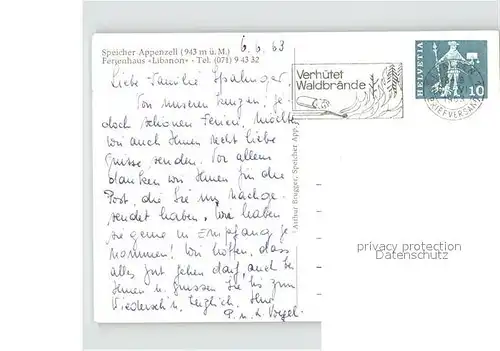 Speicher Appenzell (943 m ü. M.)
Ferienhaus «Libanon» - Tel. (071) 9 43 32
6.6.63
Liebe Familie Spalinger
Von unseren kurzen, je-
doch schönen Ferien, möchten
wir auch Ihnen recht liebe
Grüsse senden. Vor allem
danken wir Ihnen für die
Post, die Sie uns nachge-
sendet haben. Wir haben
sie gerne in Empfang ge-
nommen! Wir hoffen, dass
alles gut gehen darf, auch bei
Ihnen u. grüssen Sie bis zum
Wiederseh'n, herzlich. Ihre
P. u. L. Vogel.
Arthur Brugger, Speicher App.
Verhütet
Waldbrände
HELVETIA
10
BRIEFVERSAND
privacy protection
Datenschutz